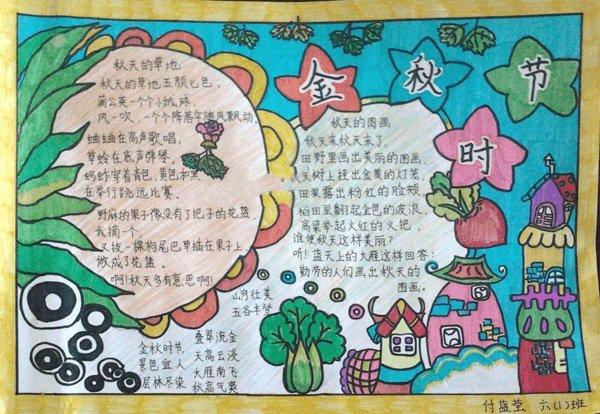 金秋时节
秋天的草地
秋天的草地五颜七色,
蒲公英一个个小绒球,
风一吹,一个个降落伞随风飘动。
蛐蛐在高声歌唱,
草蛉在底声弹琴,
蚂蚱穿着青色,黄色和黑
在举行跳远比赛。
野麻的果子像没有了把子的花篮,
我摘一个,
又拔一棵狗尾巴草插在果子上
做成了花篮。
啊!秋天多有意思啊!
秋天的图画
秋天来秋天来了,
田野里画出美丽的图画,
秋天树上挂出金黄的灯笼,
苹果露出粉红的脸颊
稻田里翻起金色的波浪,
高粱举起火红的火把,
谁使秋天这样美丽?
听!蓝天上的大雁这样回答:
勤劳的人们画出秋天的
图画。
山河壮美
五谷丰登
金秋时节,
景色宜人
层林尽染
叠翠流金
天高云淡
大雁南飞
秋高气爽
付蓝莹 六(1)班